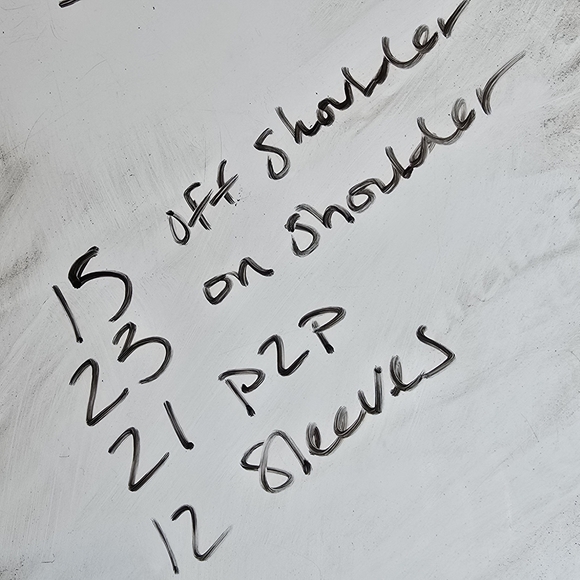 15 off shoulder
23 on shoulder
21 P2P
12 Sleeves